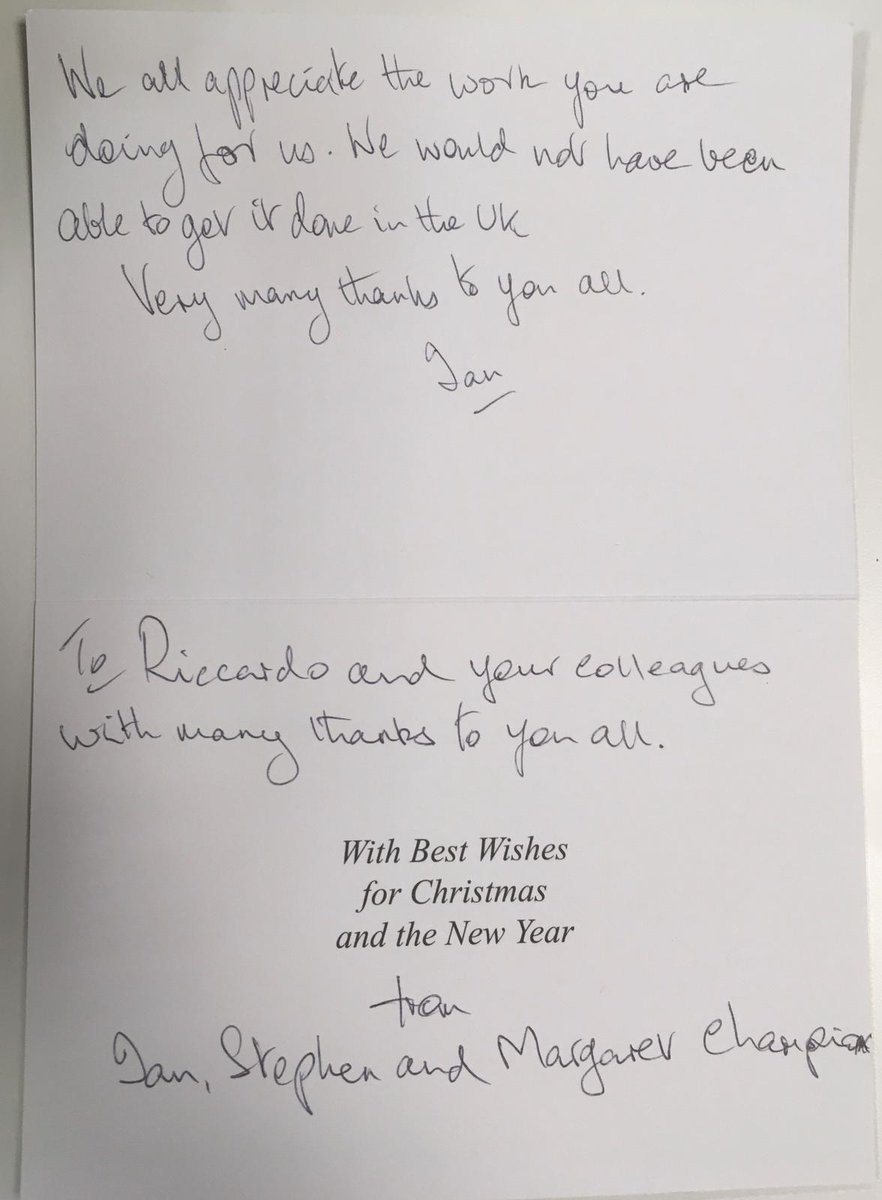 We all appreciate the work you are
doing for us. We would not have been
able to get it done in the UK
Very many thanks to you all.
Ian
To Riccardo and your colleagues
with many thanks to you all.
With Best Wishes
for Christmas
and the New Year
from
Ian, Stephen and Margaret Champion